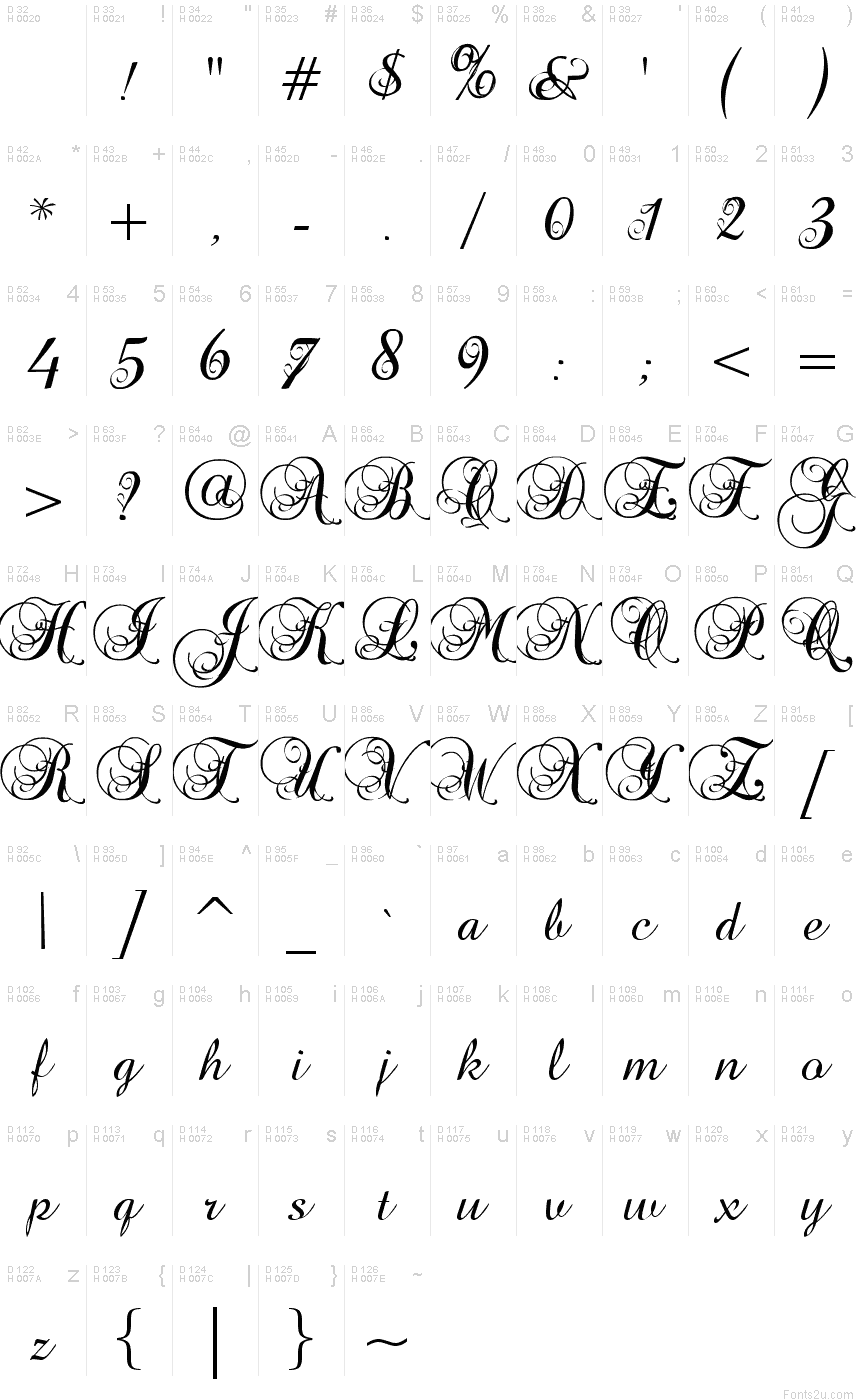 D 32 H 0020 D 33 H 0021 ! D 34 H 0022 " D 35 H 0023 # D 36 H 0024 $ D 37 H 0025 % D 38 H 0026 & D 39 H 0027 ' D 40 H 0028 ( D 41 H 0029 )
! " # $ % & ' ( )
D 42 H 002A * D 43 H 002B + D 44 H 002C , D 45 H 002D - D 46 H 002E . D 47 H 002F / D 48 H 0030 0 D 49 H 0031 1 D 50 H 0032 2 D 51 H 0033 3
* + , - . / 0 1 2 3
D 52 H 0034 4 D 53 H 0035 5 D 54 H 0036 6 D 55 H 0037 7 D 56 H 0038 8 D 57 H 0039 9 D 58 H 003A : D 59 H 003B ; D 60 H 003C < D 61 H 003D =
4 5 6 7 8 9 : ; < =
D 62 H 003E > D 63 H 003F ? D 64 H 0040 @ D 65 H 0041 A D 66 H 0042 B D 67 H 0043 C D 68 H 0044 D D 69 H 0045 E D 70 H 0046 F D 71 H 0047 G
> ? @ A B C D E F G
D 72 H 0048 H D 73 H 0049 I D 74 H 004A J D 75 H 004B K D 76 H 004C L D 77 H 004D M D 78 H 004E N D 79 H 004F O D 80 H 0050 P D 81 H 0051 Q
H I J K L M N O P Q
D 82 H 0052 R D 83 H 0053 S D 84 H 0054 T D 85 H 0055 U D 86 H 0056 V D 87 H 0057 W D 88 H 0058 X D 89 H 0059 Y D 90 H 005A Z D 91 H 005B [
R S T U V W X Y Z [
D 92 H 005C \ D 93 H 005D ] D 94 H 005E ^ D 95 H 005F _ D 96 H 0060 ` D 97 H 0061 a D 98 H 0062 b D 99 H 0063 c D 100 H 0064 d D 101 H 0065 e
| ] ^ _ ` a b c d e
D 102 H 0066 f D 103 H 0067 g D 104 H 0068 h D 105 H 0069 i D 106 H 006A j D 107 H 006B k D 108 H 006C l D 109 H 006D m D 110 H 006E n D 111 H 006F o
f g h i j k l m n o
D 112 H 0070 p D 113 H 0071 q D 114 H 0072 r D 115 H 0073 s D 116 H 0074 t D 117 H 0075 u D 118 H 0076 v D 119 H 0077 w D 120 H 0078 x D 121 H 0079 y
p q r s t u v w x y
D 122 H 007A z D 123 H 007B { D 124 H 007C | D 125 H 007D } D 126 H 007E ~
z { | } ~
Fonts2u.com